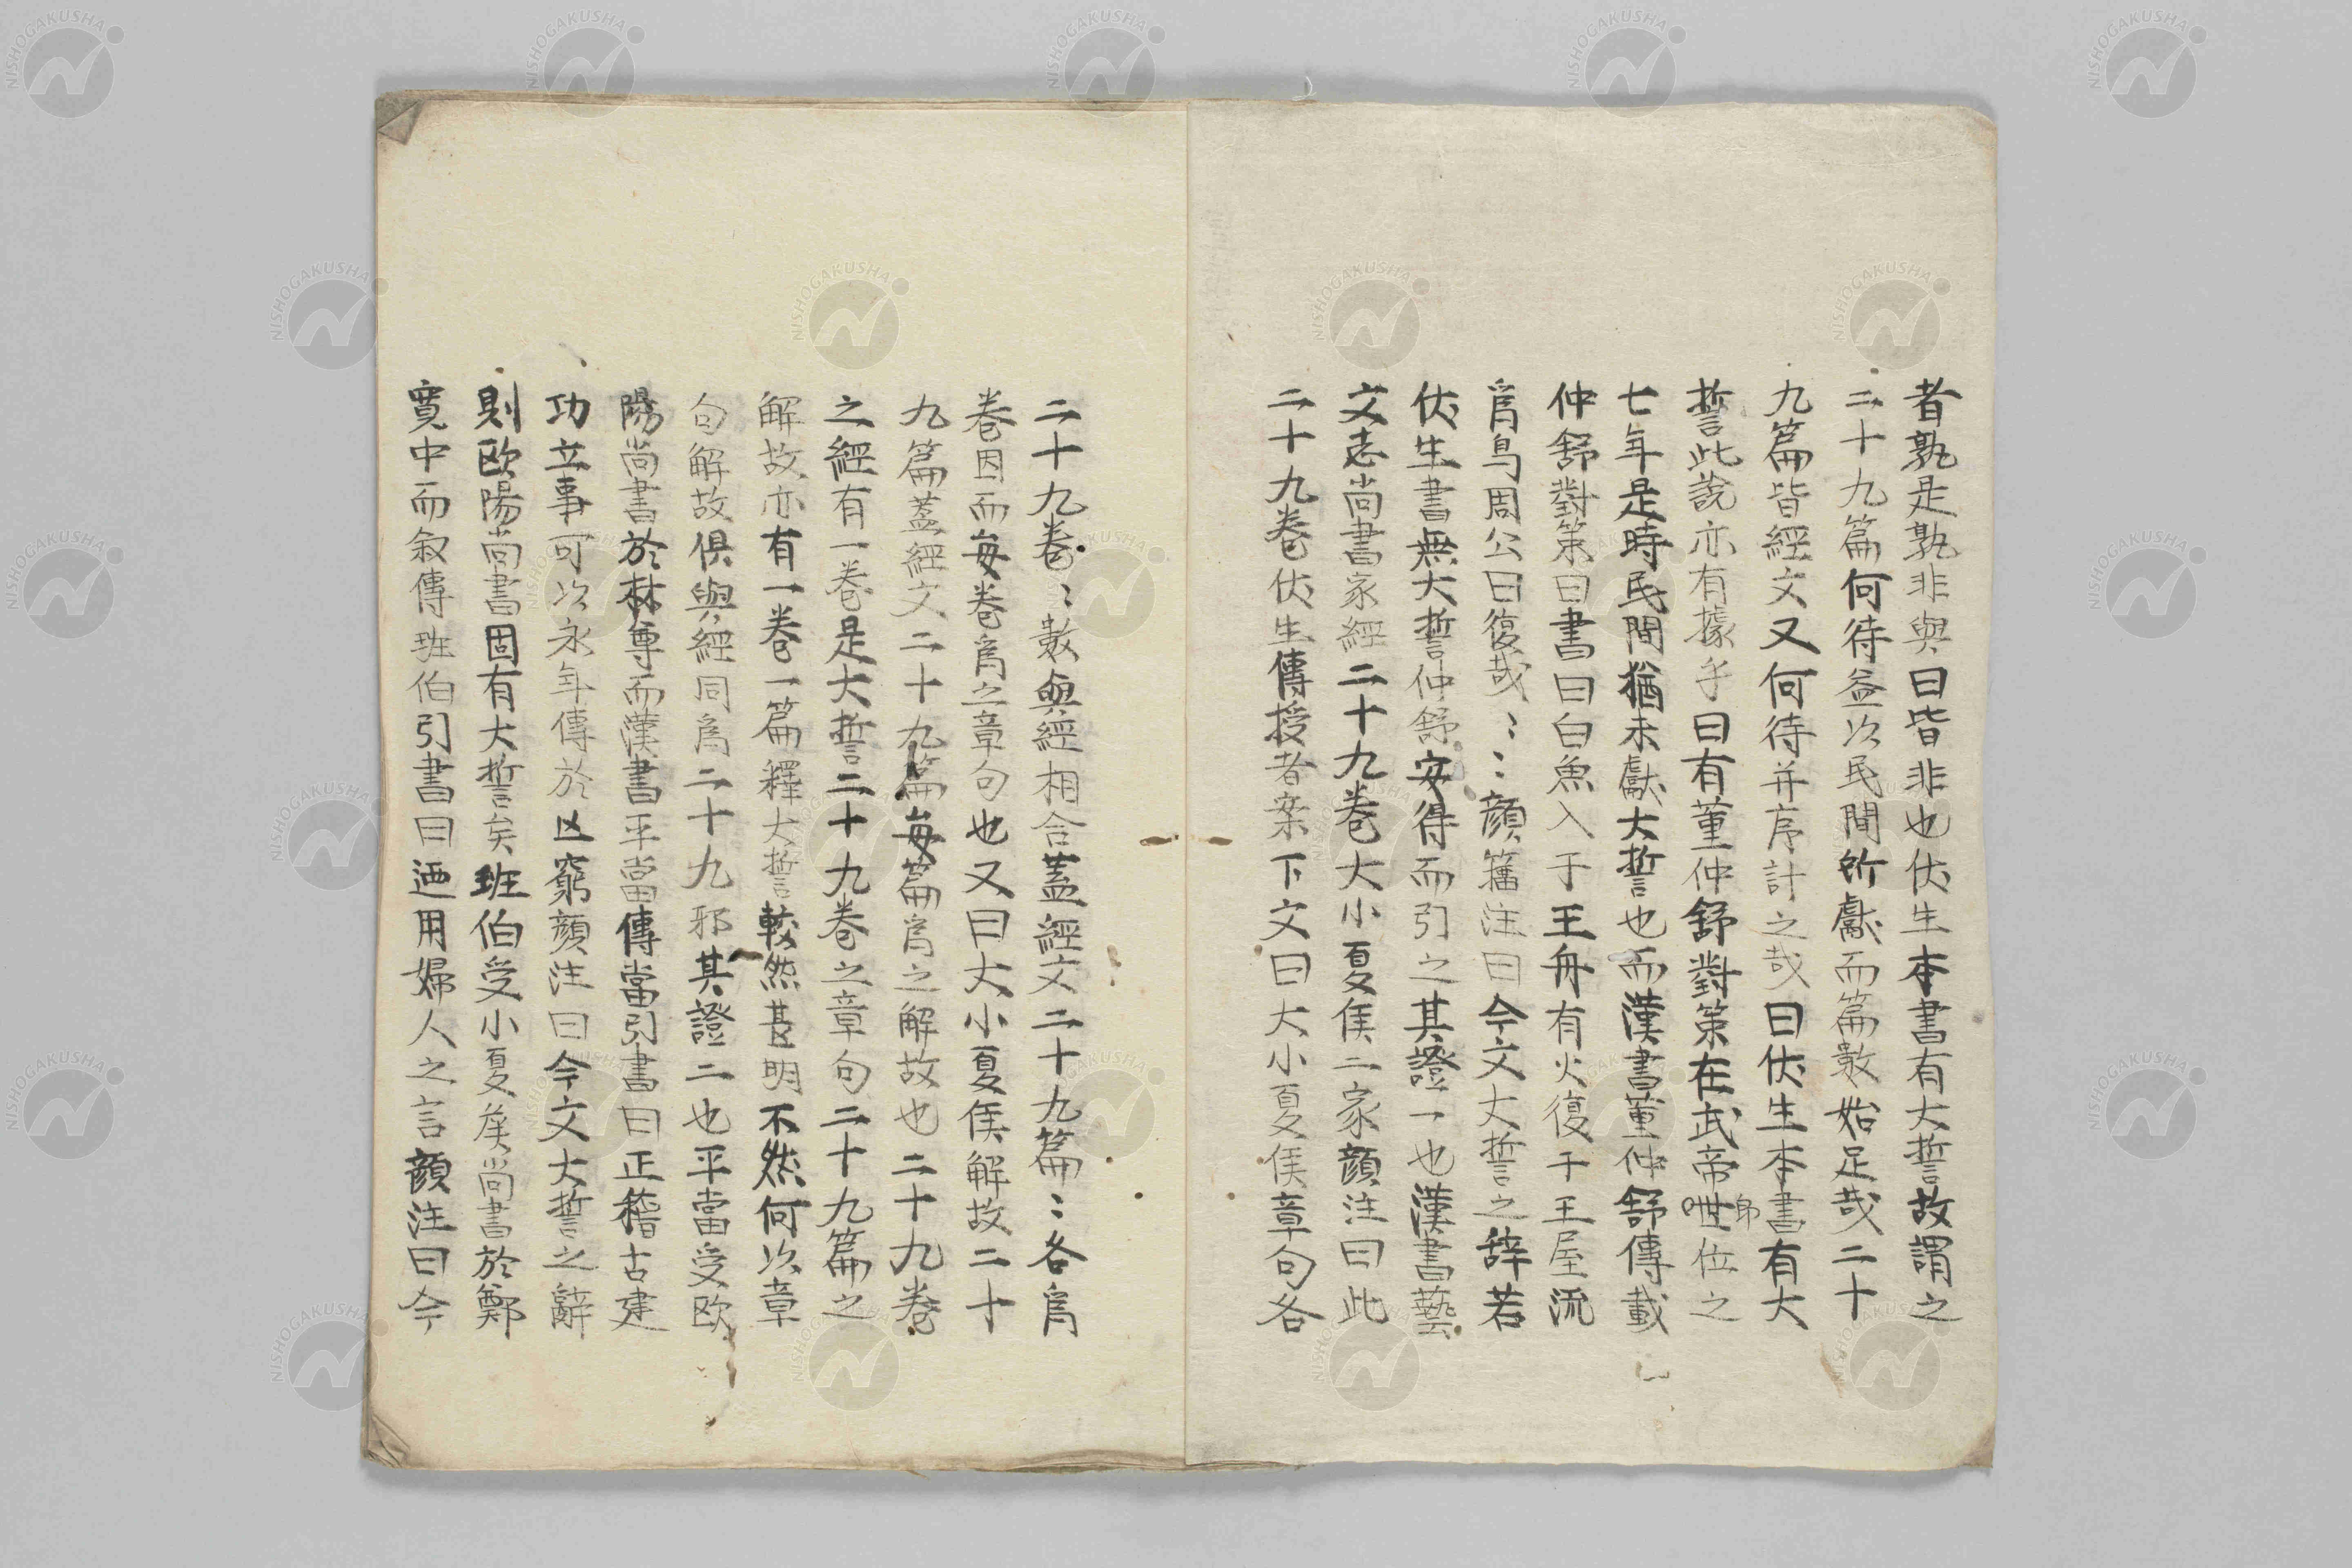 者孰是孰非與曰皆非也伏生本書有大誓故謂之
二十九篇何待益以民間所獻而篇數始足哉二十
九篇皆經文又何待并序計之哉曰伏生本書有大
誓此說亦有據乎曰有董仲舒對策在武帝世位之
七年是時民間猶未獻大誓也而漢書董仲舒傳載
仲舒對策曰書曰白魚入于王舟有火復于王屋流
爲烏周公曰復哉〻〻顏籀注曰今文大誓之辞若
伏生書無大誓仲舒安得而引之其證一也漢書藝
文志尚書家經二十九卷大小夏侯二家顏注曰此
二十九卷伏生傳授者案下文曰大小夏侯章句各
二十九卷〻數與經相合蓋經文二十九篇〻各爲
卷因而每卷爲之章句也又曰大小夏侯解故二十
九篇蓋經文二十九篇每篇爲之解故也二十九卷
之經有一卷是大誓二十九卷之章句二十九篇之
解故亦有一卷一篇釋大誓較然甚明不然何以章
句解故俱與經同爲二十九邪其證二也平當受歐
陽尚書於林尊而漢書平當傳當引書曰正稽古建
功立事可以永年傳於亾窮顏注曰今文大誓之辭
則歐陽尚書固有大誓矣班伯受小夏矦尚書於鄭
寬中而叙傳班伯引書曰迺用婦人之言顏注曰今
NISHOGAKUSHA